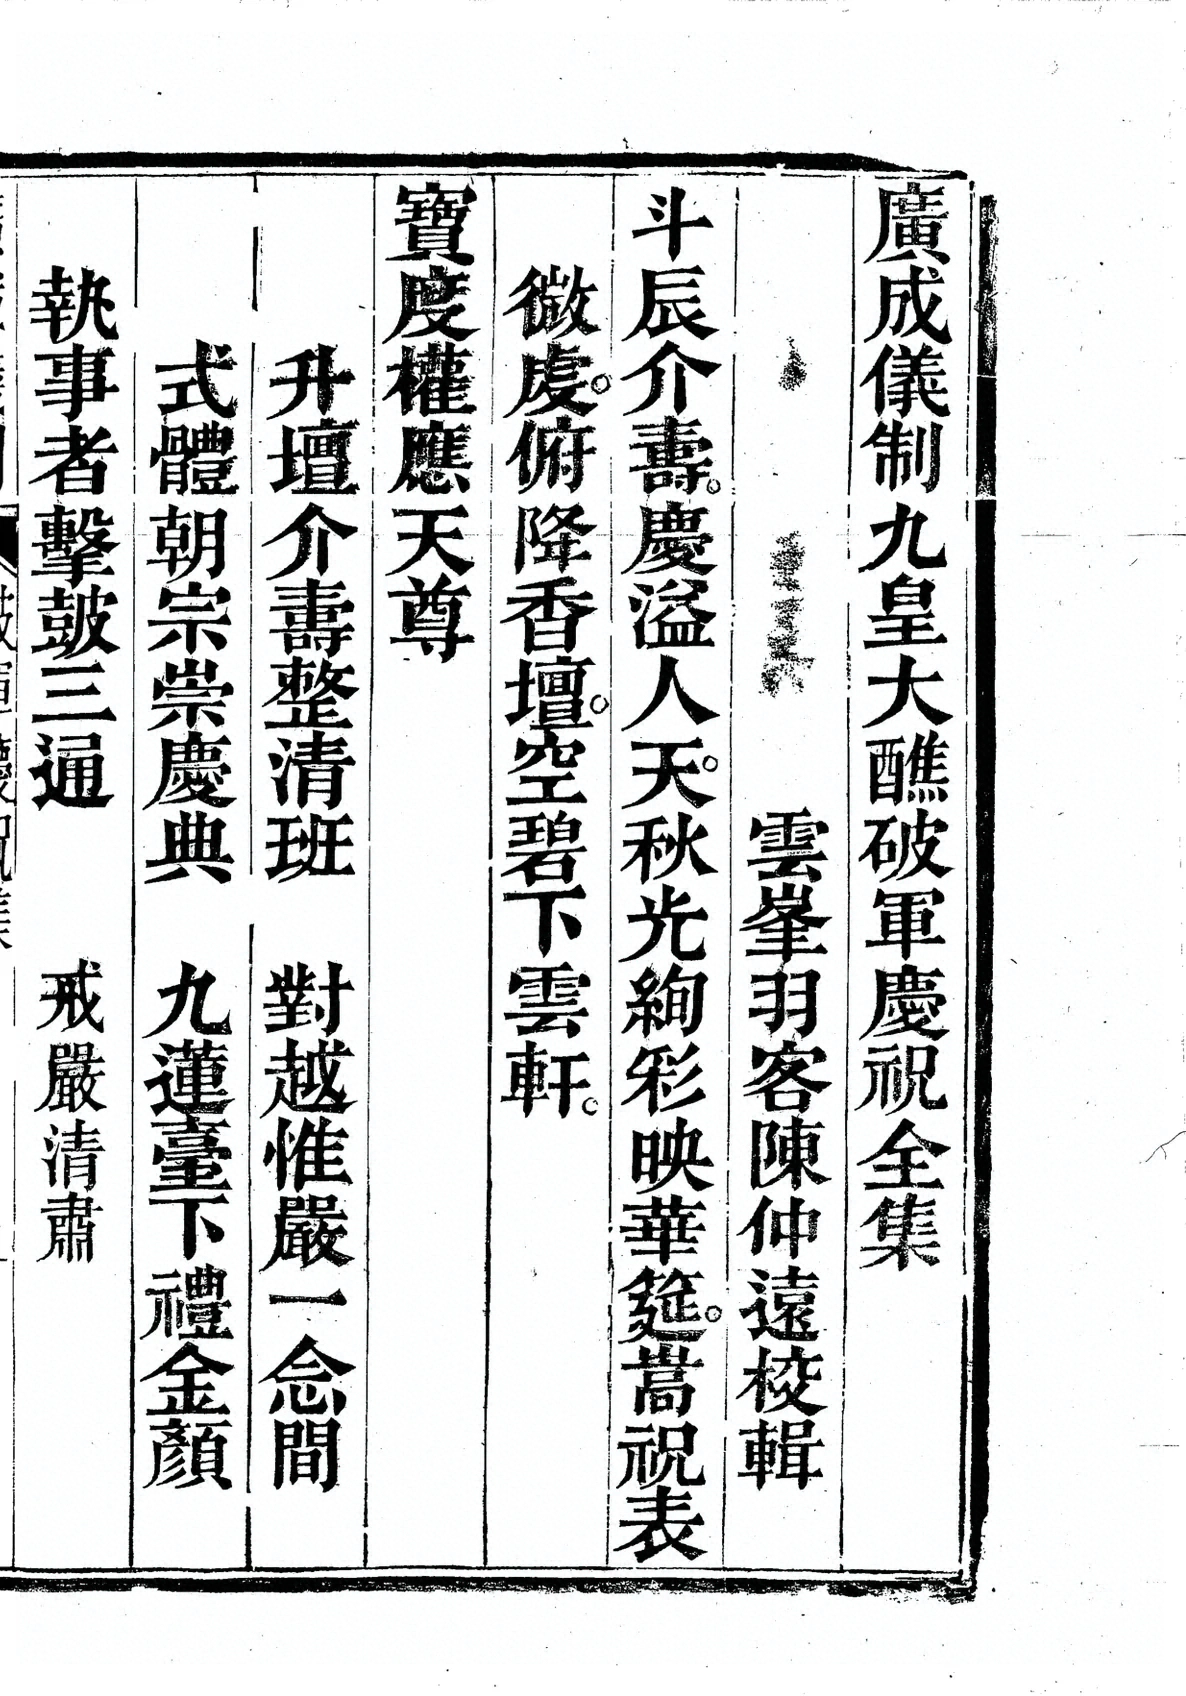 廣成儀制九皇大醮破軍慶祝全集
雲峯羽客陳仲遠校輯
斗辰介壽。慶溢人天。秋光絢彩映華筵。嵩祝表
微虔。俯降香壇。空碧下雲軒。
寶度權應天尊
升壇介壽整清班　對越惟嚴一念間
式體朝宗崇慶典　九蓮臺下禮金顏
執事者擊鼓三通　戒嚴清肅